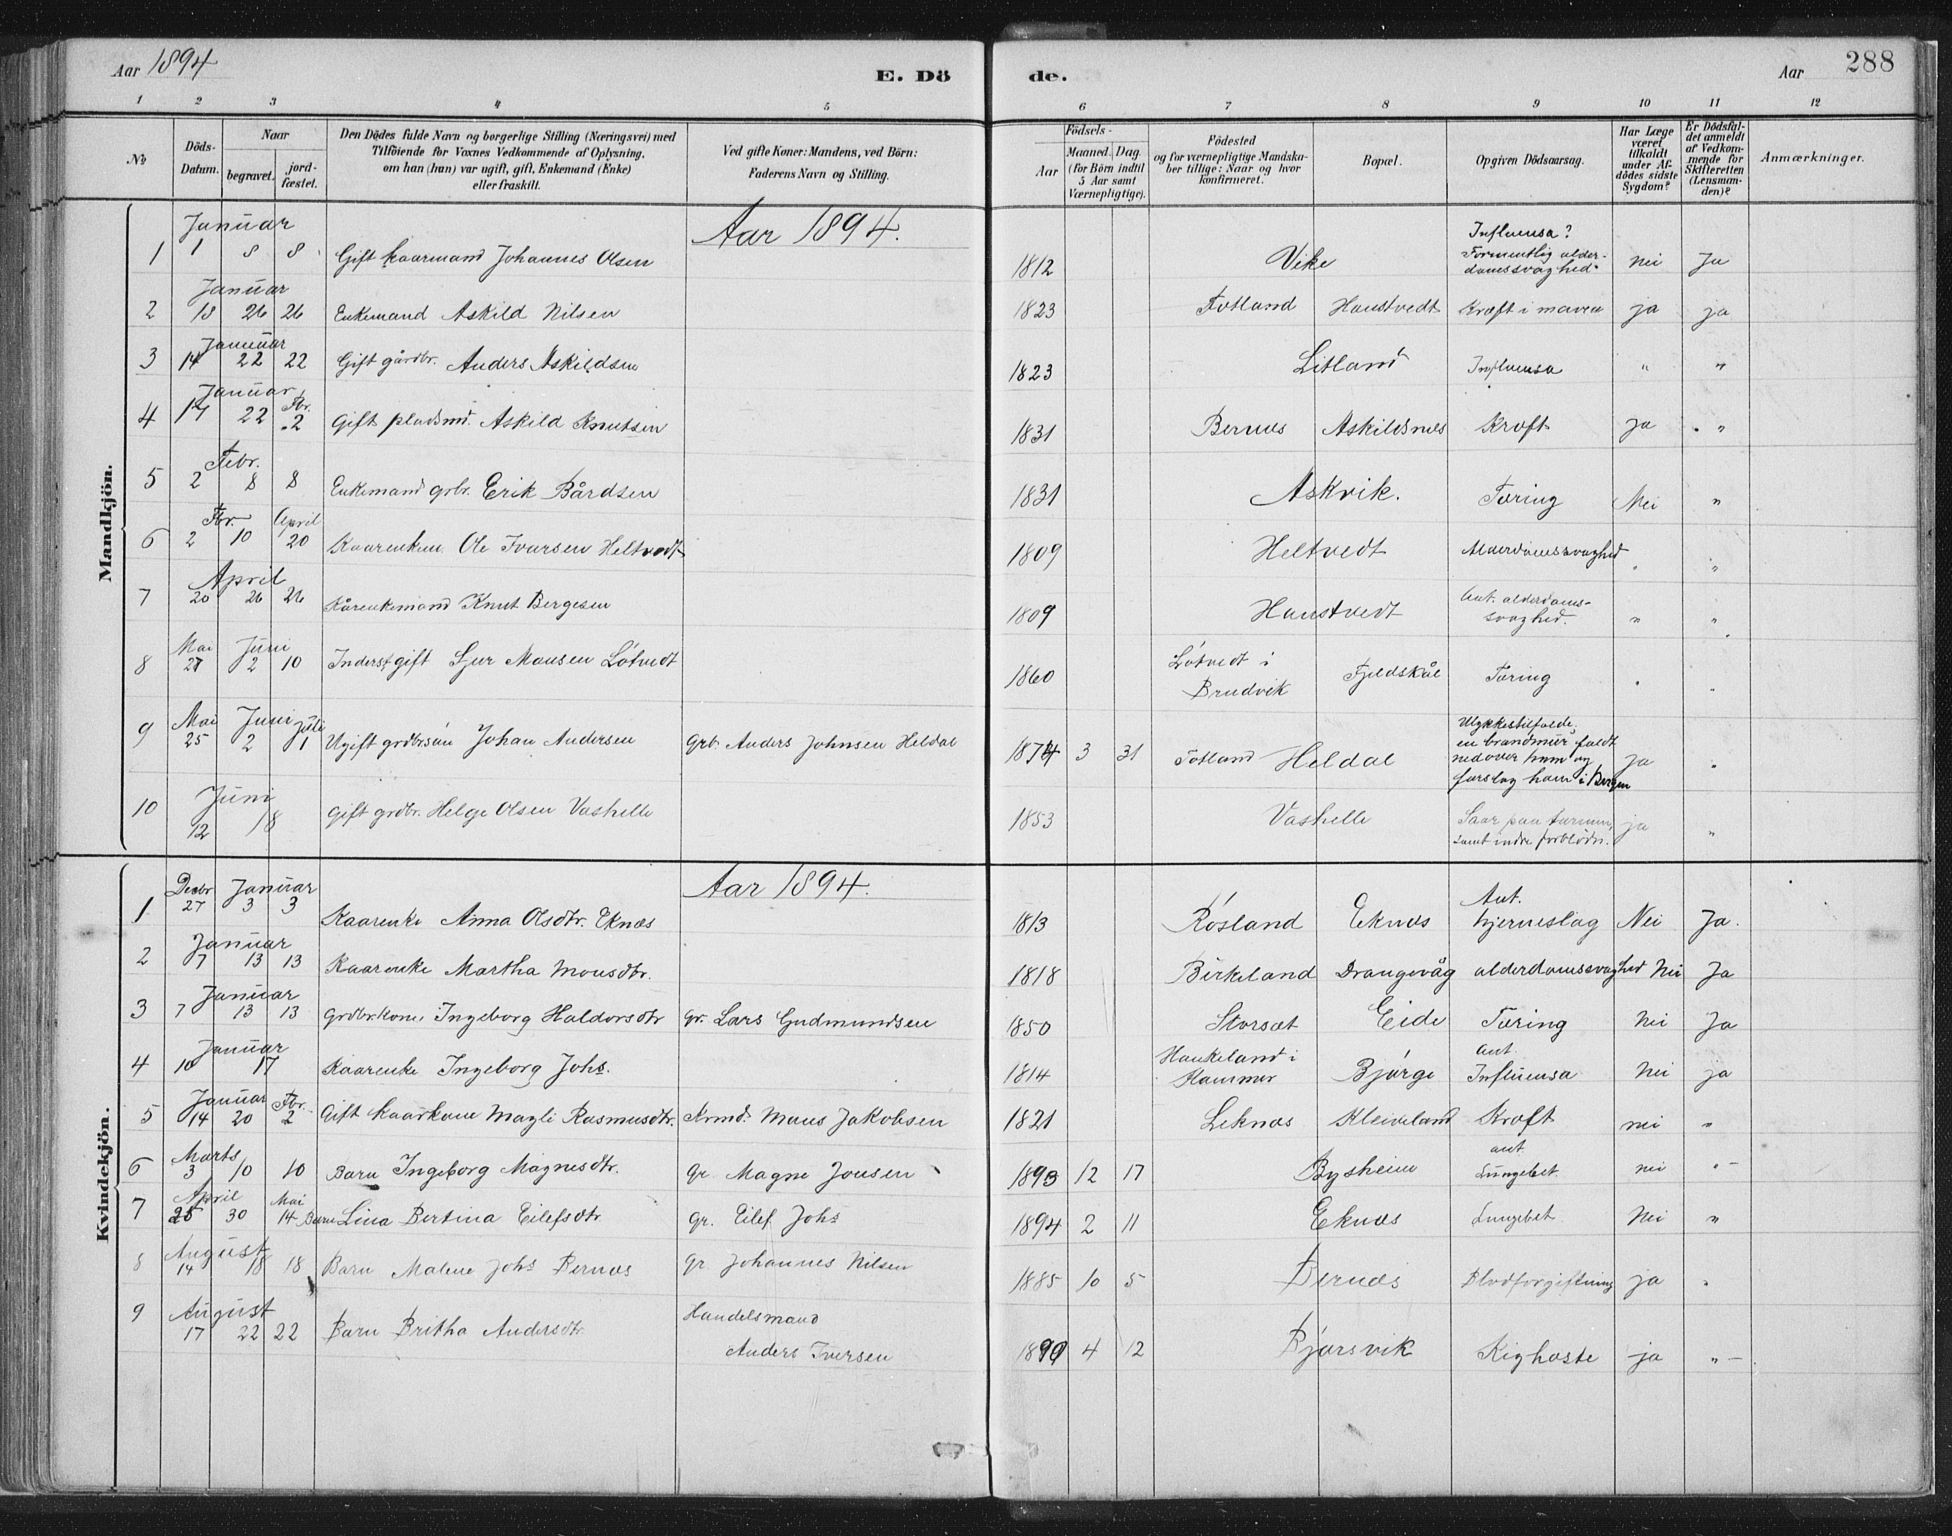 Aar 1894
E. Dö
de.
Aar
288
1 2 3 4 5 6 7 8 9 10 11 12
№
Döds-Datum.
Naar
begravet.
jordfæstet.
Den Dödes fulde Navn og borgerlige Stilling (Næringsvei) med
Tilföiende for Voxnes Vedkommende af Oplysning,
om han (hun) var ugift, gift, Enkemand (Enke)
eller fraskilt.
Ved gifte Koner: Mandens, ved Börn:
Faderens Navn og Stilling.
Födsels-
Aar
Maaned. Dag.
(for Börn indtil
5 Aar samt
Værnepligtige).
Födested
og for værnepligtige Mandskaber tillige: Naar og hvor
konfirmeret.
Bopæl.
Opgiven Dödsaarsag.
Har Læge
været
tilkaldt
under Afdödes sidste
Sygdom?
Er Dödsfaldet anmeldt
af Vedkommende for
Skifteretten
(Lensmanden)?
Anmærkninger.
Mandkjön.
Aar 1894.
1 Januar 1 8 8 Gift kaarmand Johannes Olsen 1812 Vike Influensa? Formentlig alderdomssvaghed Nei Ja
2 Januar 13 26 26 Enkemand Askild Nilsen 1823 Totland Haustvedt Kræft i maven ja ja
3 Januar 14 22 22 Gift gårdbr. Anders Askildsen 1823 Litland Influensa " "
4 Januar 17 22 Fbr. 2 Gift pladsmd. Askild Knutsen 1831 Bernes Askildsnes Kræft Ja "
5 Febr. 2 8 8 Enkemand grbr. Erik Bårdsen 1831 Askvik. Tæring Nei "
6 Fbr. 2 10 April 20 Kaarenkem. Ole Ivarsen Heltvedt 1809 Heltvedt Alderdomssvaghed " "
7 April 20 26 26 Kårenkemand Knut Bergesen 1809 Haustvedt Ant. alderdomssvaghed. " "
8 Mai 27 Juni 2 10 Inderst gift Sjur Monsen Lótvedt 1860 Lótvedt i Bruvik Fjeldskål Tæring " "
9 Mai 25 Juni 2 Juli 1 Ugift grdbrsön Johan Andersen Grb. Anders Johnsen Heldal 1874 3 31 Totland Heldal Ulykkestilfælde, en brandmur faldt nedover ham og forslog ham i Bergen Ja "
10 Juni 12 18 Gift grdbr. Helge Olsen Vashelle 1853 Vashelle Saar paa tarmen, samt indre forblödn. ja "
Kvindekjön.
Aar 1894.
1 Decbr 27 Januar 3 3 Kaarenke Anna Olsdtr. Eknæs 1813 Røsland Eknæs Ant. hjerneslag Nei Ja.
2 Januar 7 13 13 Kaarenke Martha Monsdtr. 1818 Birkeland Drangevåg alderdomssvaghed Nei Ja
3 Januar 7 13 13 Grdbrkone Ingeborg Haldorsdtr Gr. Lars Gudmundsen 1850 Storsæt Eide Tæring Nei Ja
4 Januar 10 17 Kaarenke Ingeborg Johs. 1814 Haukeland i Hammer Bjørge Ant. Influensa Nei ja
5 Januar 14 20 Fbr. 2 Gift kaarkone Magli Rasmusdtr. Krmd. Mons Jakobsen 1821 Leknæs Kleiveland Kræft nei "
6 Marts 3 10 10 Barn Ingeborg Magnesdtr. gr Magne Jonsen 1893 12 17 Bysheim ant. Lungebet. nei " -
7 April 25 30 Mai 14 Barn Lina Bertina Eilefsdtr gr. Eilef Johs 1894 2 11 Eknæs Lungebet Nei "
8 August 14 18 18 Barn Malene Johs Bernæs gr Johannes Nilsen 1885 10 5 Bernæs Blodforgiftning ja "
9 August 17 22 22 Barn Britha Andersdtr. Handelsmand Anders Iversen 1890 4 12 Bjørsvik Kighoste ja " -